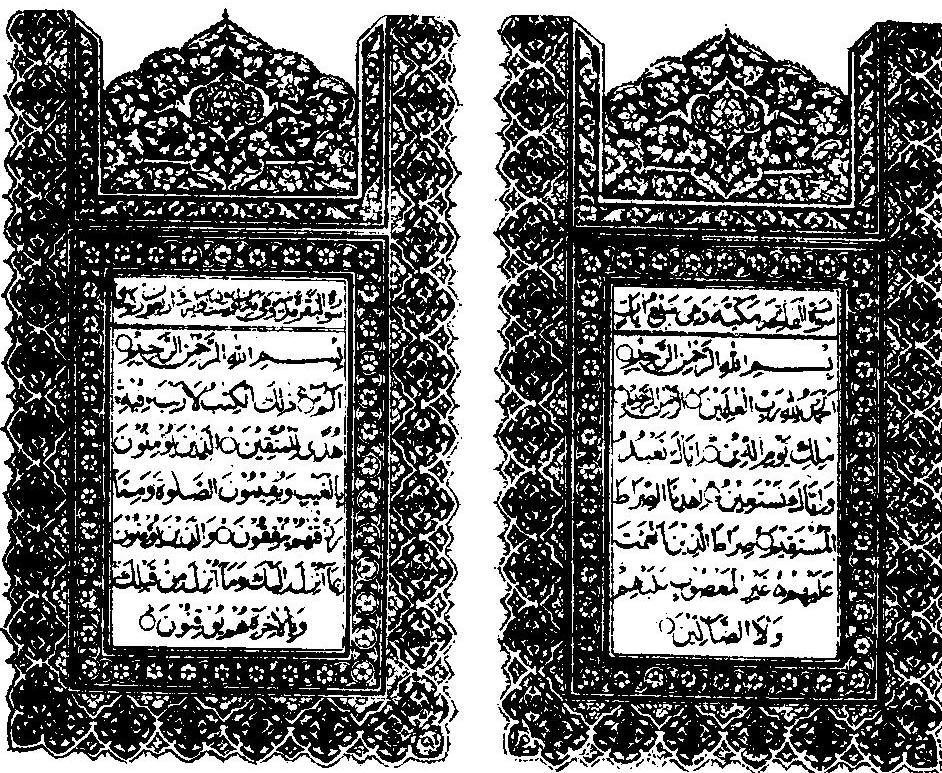 سورة الفاتحة مكية وهي سبع آيات
بسم الله الرحمن الرحيم
الحمد لله رب العلمين الرحمن الرحيم
ملك يوم الدين اياك نعبد
واياك نستعين اهدنا الصراط
المستقيم صراط الذين انعمت
عليهم غير المغضوب عليهم
ولا الضالين
سورة البقرة
بسم الله الرحمن الرحيم
الم ذلك الكتب لا ريب فيه
هدى للمتقين الذين يؤمنون
بالغيب ويقيمون الصلوة ومما
رزقنهم ينفقون والذين يؤمنون
بما انزل اليك وما انزل من قبلك
وبالاخرة هم يوقنون